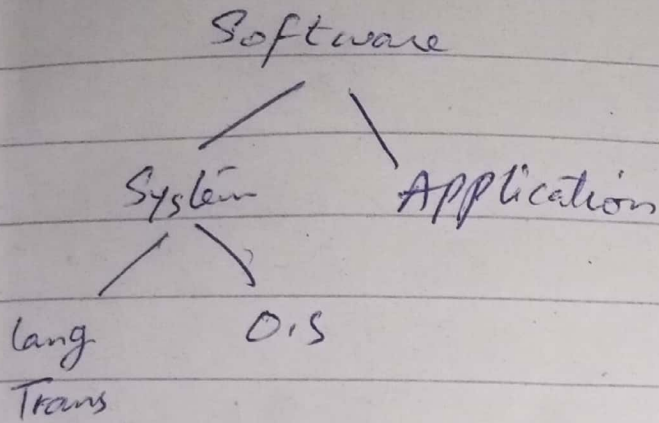 Software
System Application
Lang O.S
Trans